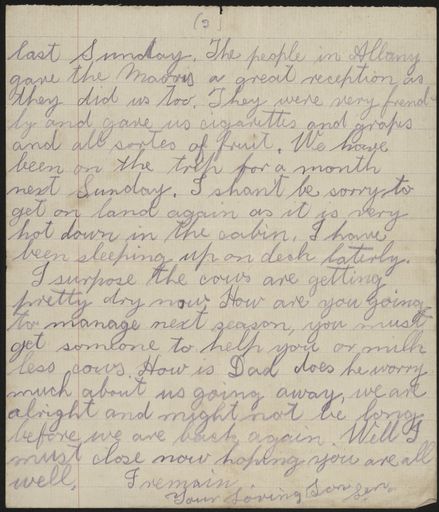 (3)
last Sunday. The people in Albany
gave the Maoris a great reception as
they did us too. They were very frend-
ly and gave us cigarettes and graps
and all sortes of fruit. We have
been on the trip for a month
next Sunday. I shant be sorry to
get on land again as it is very
hot down in the cabin. I have
been sleeping up on deck laterly.
I surpose the cows are getting
pretty dry now. How are you going
to manage next season, you must
get someone to help you or milk
less cows. How is Dad does he worry
much about us going away, we are
alright and might not be long
before we are back again. Well I
must close now hoping you are all
well. I remain
Your Loving Son